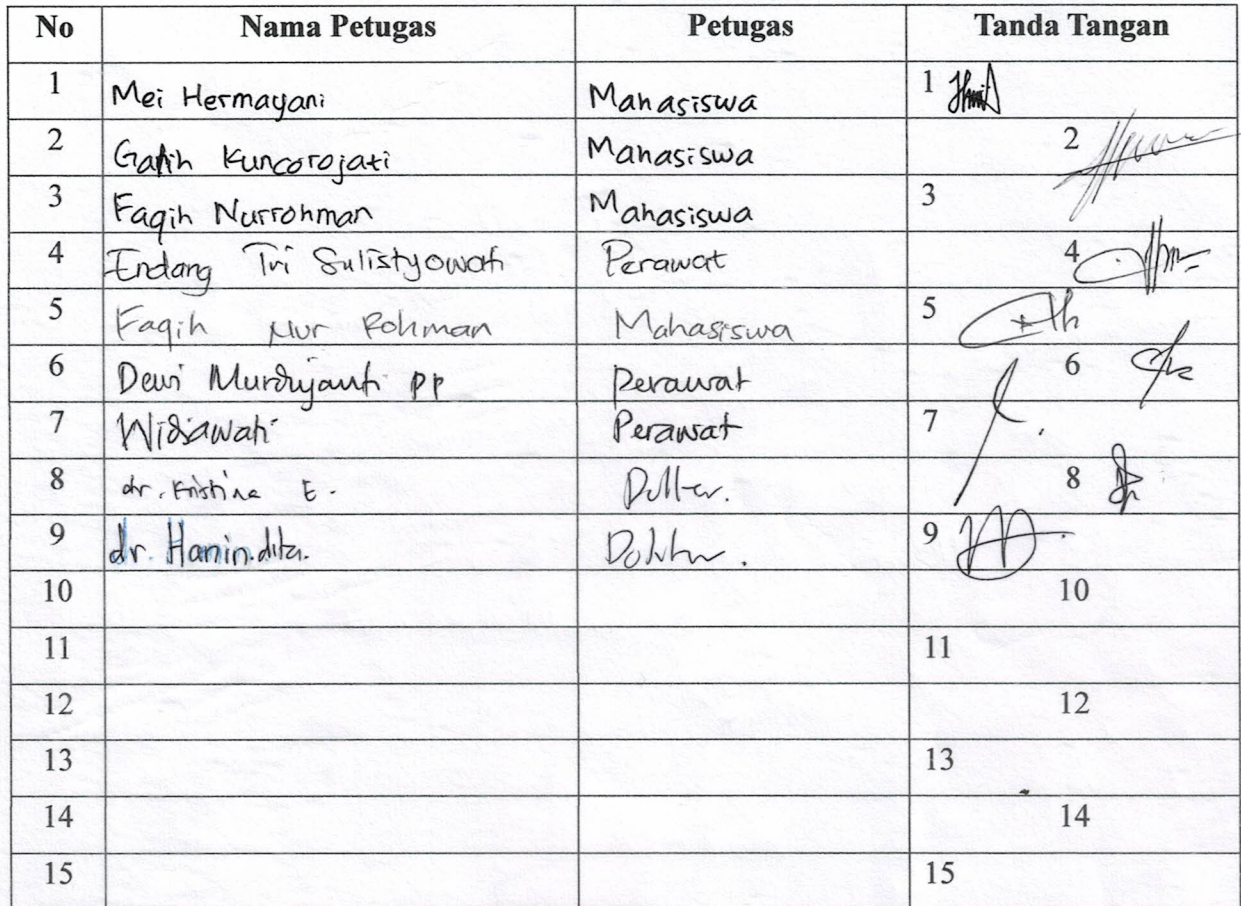 No Nama Petugas Petugas Tanda Tangan
1 Mei Hermayani Mahasiswa 1
2 Galih Kuncorojati Mahasiswa 2
3 Faqih Nurrohman Mahasiswa 3
4 Endang Tri Sulistyowati Perawat 4
5 Faqih Nur Rohman Mahasiswa 5
6 Dewi Murdiyanti PP Perawat 6
7 Widiawati Perawat 7
8 dr. Kristina E. Dokter. 8
9 dr. Hanindita. Dokter. 9
10 10
11 11
12 12
13 13
14 14
15 15